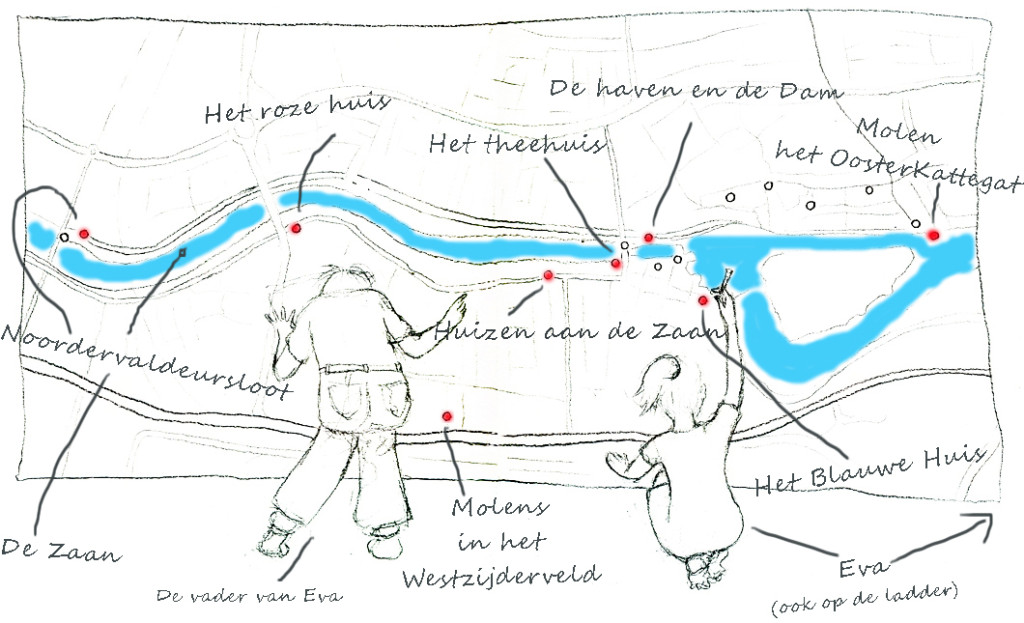 De haven en de Dam
Het roze huis
Het theehuis
Molen
het OosterKattegat
Huizen aan de Zaan
Noordervaldeursloot
Het Blauwe Huis
Molens
in het
Westzijderveld
De Zaan
De vader van Eva
Eva
(ook op de ladder)